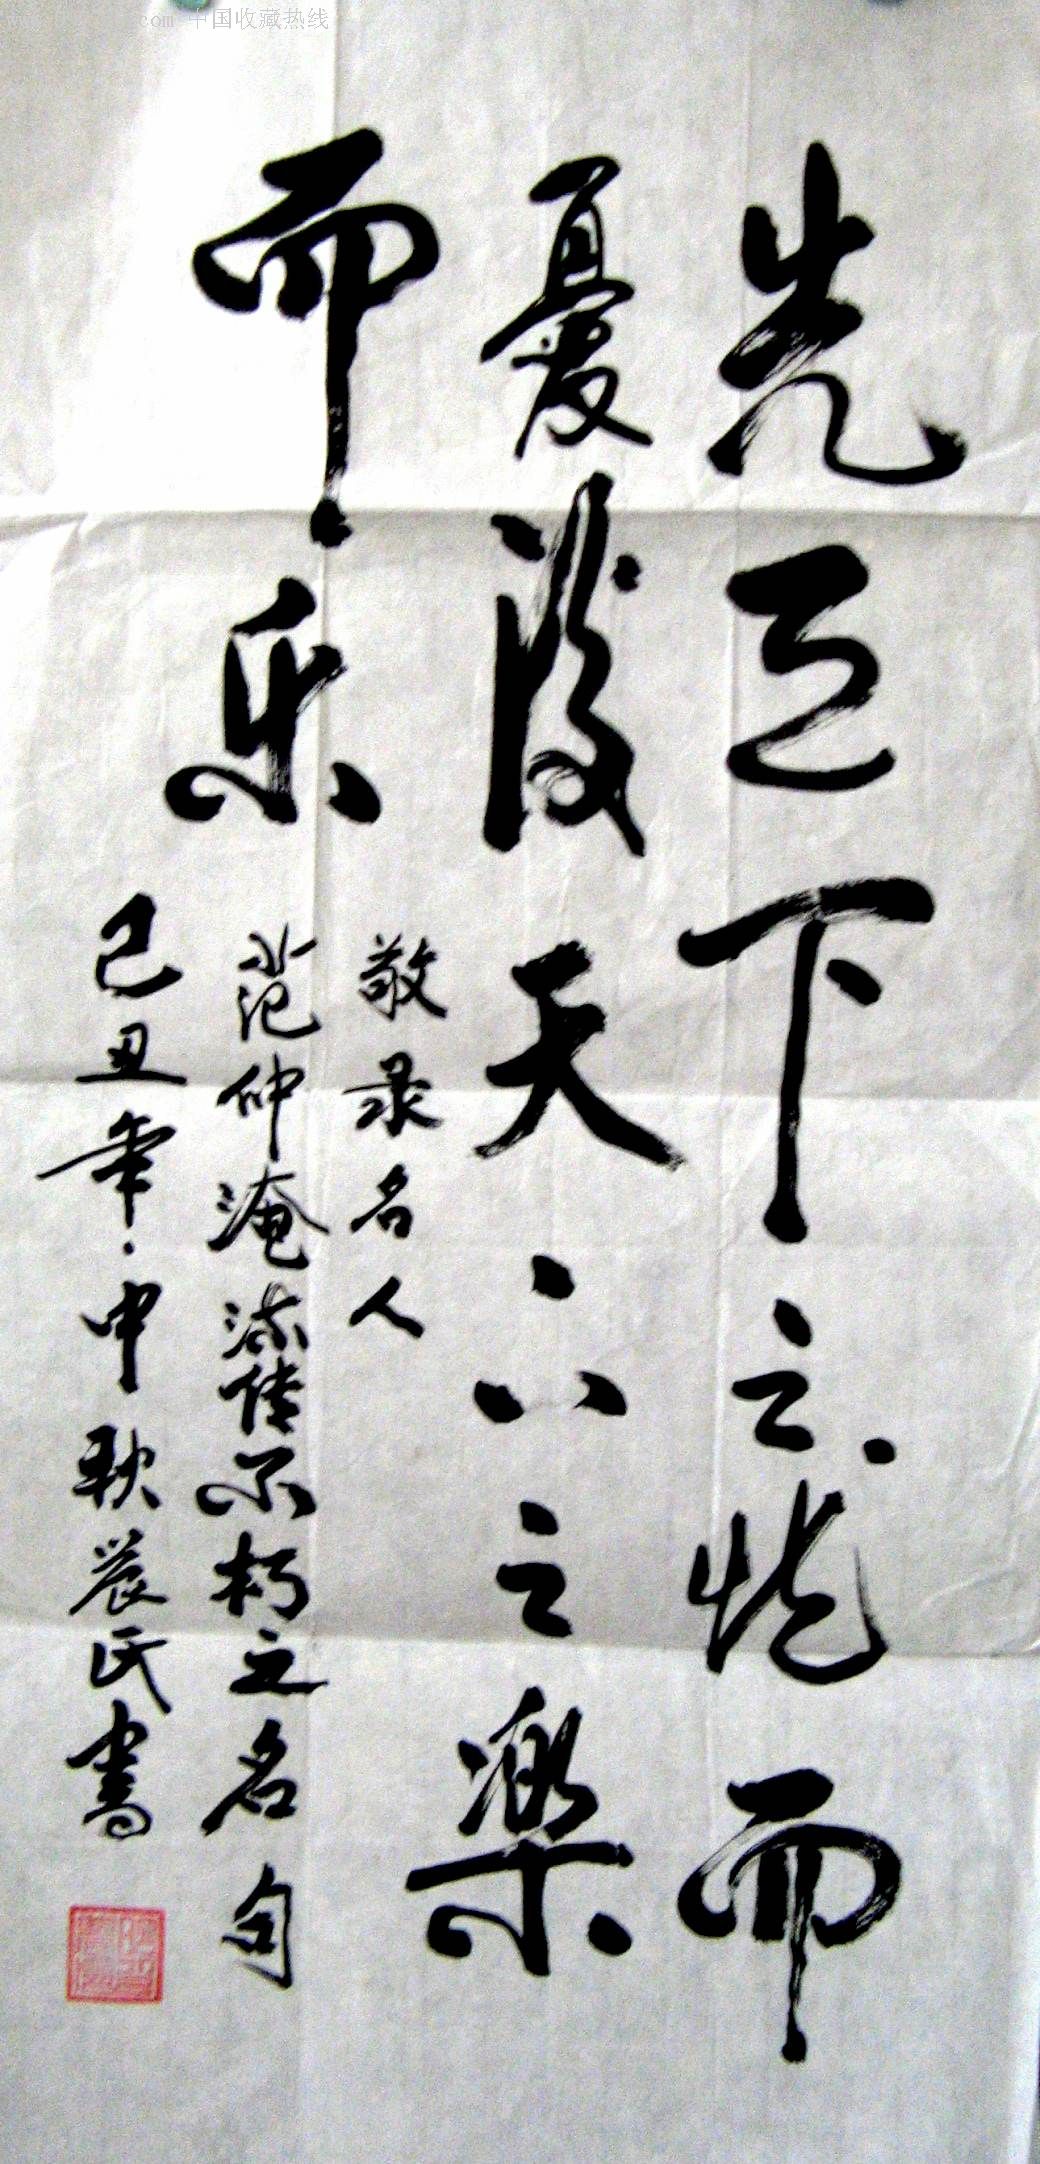 先天下之忧而
憂後天下之樂
而乐
敬录名人
范仲淹流传不朽之名句
己丑年·中秋農民書
com 中国收藏热线